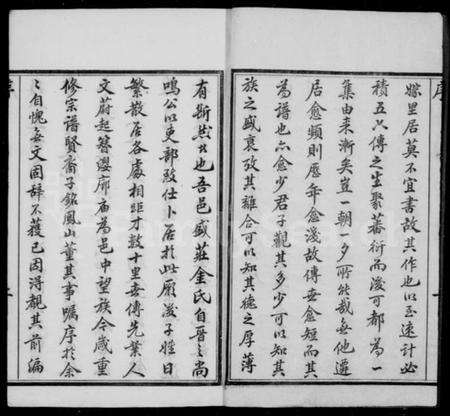 嫁里居莫不宜書故其作也以至速計必
積五六傳之生聚蕃衍而後可都為一
集由來漸矣豈一朝一夕所能哉無他遷
居愈頻則歷年愈淺故傳世愈短而其
為譜也亦愈少君子觀其多少可以知其
族之盛衰攷其離合可以知其德之厚薄
有斯哉也吾邑盛莊金氏自晋之尚
鳴公以吏部致仕卜居於此厥後子姓日
繁散居各處相距才數十里世傳先業人
文蔚起簪纓廊廟為邑中望族今歲重
修宗譜賢裔子銘鳳山董其事囑序於余
自愧無文固辭不獲已因得觀其前編
序